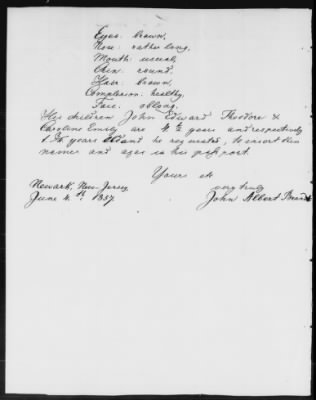 Eyes: brown,
Nose: rather long,
Mouth: usual,
Chin: round,
Hair: brown,
Complexion: healthy,
Face: oblong.
His children John Edward Theodore &
Caroline Emily are 4 1/2 years and respectively
1 3/4 years old and he requested, to insert their
names and ages in his passport.
Yours etc
very truly
Newark, New Jersey
John Albert
June 4.th 1857